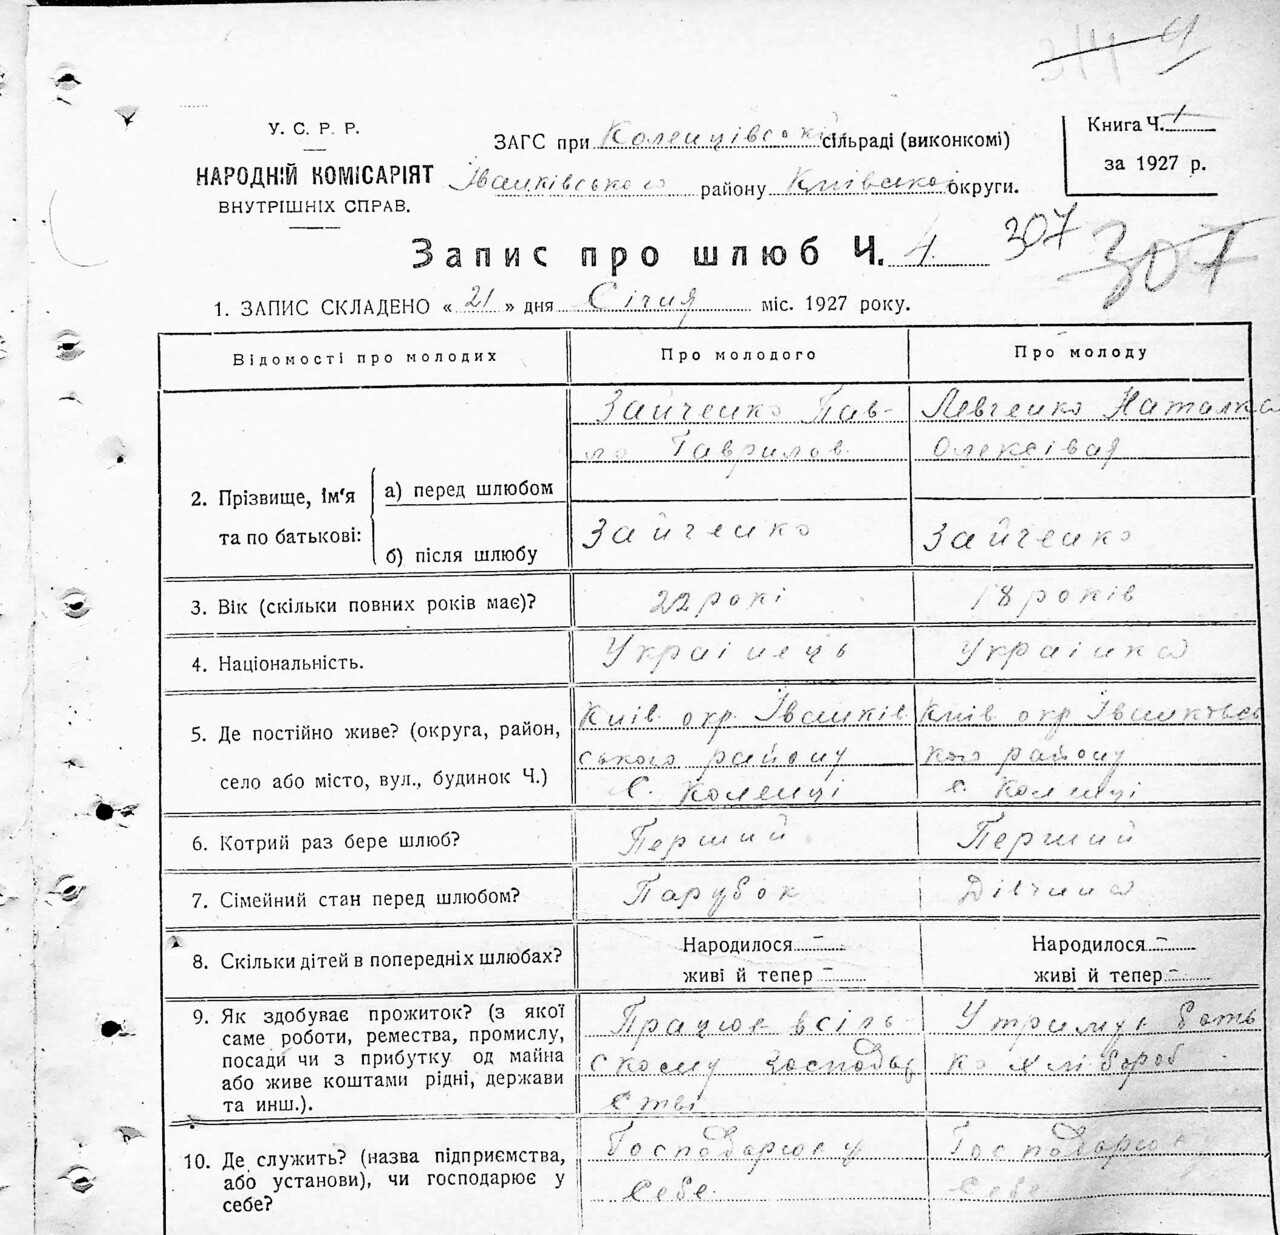 344 У
У. С. Р. Р.
НАРОДНІЙ КОМІСАРІЯТ
ВНУТРІШНІХ СПРАВ.
ЗАГС при Коленцівській сільраді (виконкомі)
Іванківського району Київської округи.
Книга Ч. 1
за 1927 р.
Запис про шлюб Ч. 4
307 307
1. ЗАПИС СКЛАДЕНО « 21 » дня Січня міс. 1927 року.
Відомості про молодих
Про молодого
Про молоду
2. Прізвище, ім'я та по батькові:
а) перед шлюбом
Зайченко Пав-
ло Гаврилов
Левченко Наталка
Олексівая
б) після шлюбу
Зайченко
Зайченко
3. Вік (скільки повних років має)?
22 рокі
18 років
4. Національність.
Українець
Українка
5. Де постійно живе? (округа, район,
село або місто, вул., будинок Ч.)
Київ окр Іванків
ського району
С. Коленці
Київ окр Іванковсь
кого району
с. Коленці
6. Котрий раз бере шлюб?
Перший
Перший
7. Сімейний стан перед шлюбом?
Парубок
Дівчина
8. Скільки дітей в попередніх шлюбах?
Народилося -
живі й тепер -
Народилося -
живі й тепер -
9. Як здобуває прожиток? (з якої
саме роботи, ремества, промислу,
посади чи з прибутку од майна
або живе коштами рідні, держави
та инш.).
Працює в сіль
скому господар
стві
Утримує бать
ко хлібороб
10. Де служить? (назва підприємства,
або установи), чи господарює у
себе?
Господарює у
себе
Господарю
себе